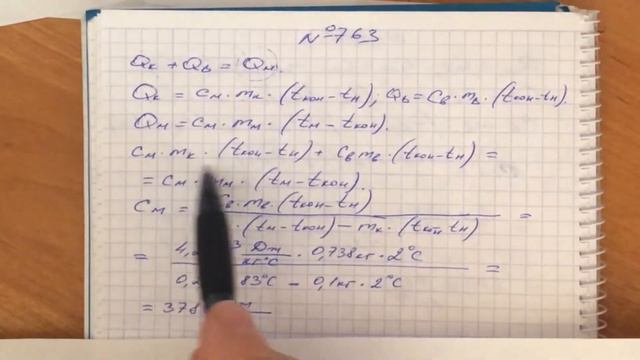 №763
Qк + Qв = Qм.
Qк = cм · mк · (tкон - tн); Qв = cв · mв · (tкон - tн).
Qм = cм · mм · (tм - tкон).
cм · mк · (tкон - tн) + cв mв · (tкон - tн) =
= cм · mм · (tм - tкон).
cм = cв · mв · (tкон - tн) =
· (tм - tкон) - mк · (tкон tн)
= 4,2 3 Дж · 0,738кг · 2°C =
кг°C
0,2 83°C - 0,1кг · 2°C
= 378